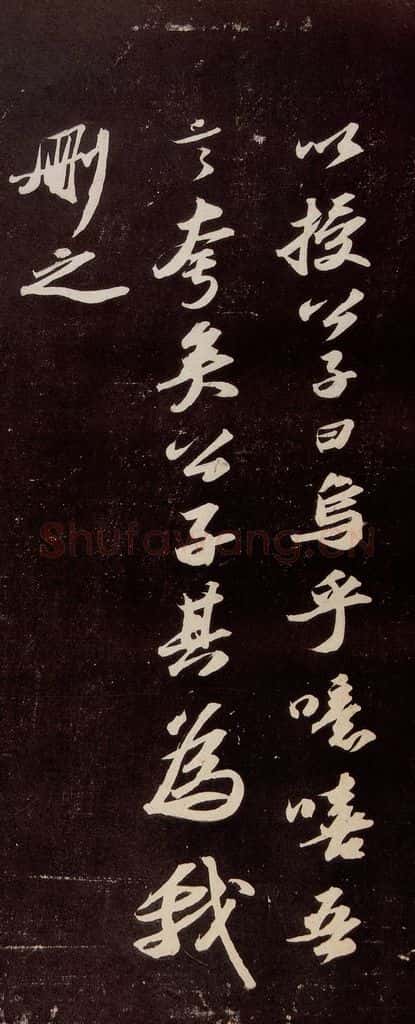 以授公子曰烏乎噫嘻吾
言夸矣公子其為我
刪之
Shufawang.CN